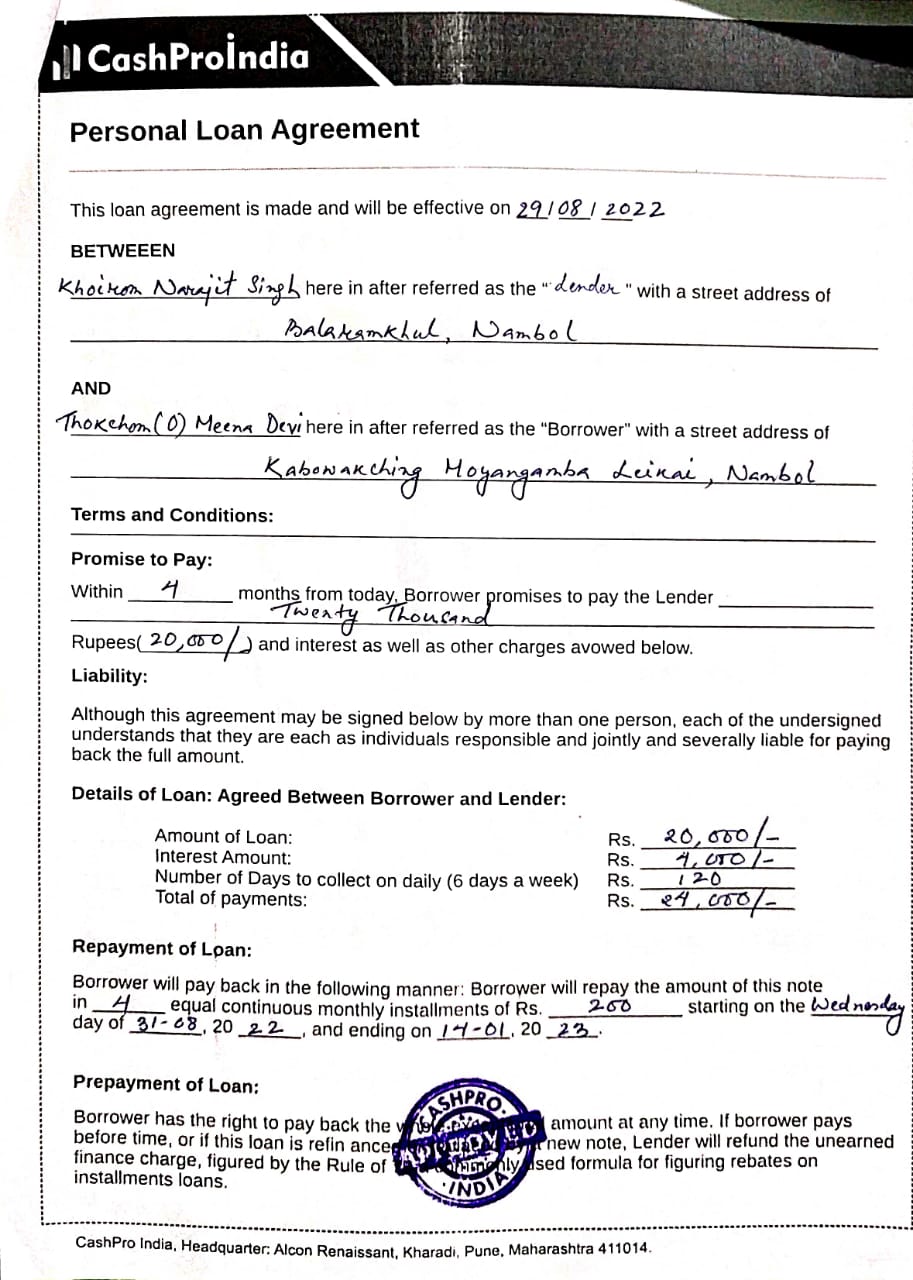 CashProIndia
Personal Loan Agreement
This loan agreement is made and will be effective on 29/08/2022
BETWEEEN
Khoirom Narajit Singh here in after referred as the "Lender" with a street address of
Balaramkhul, Nambol
AND
Thokchom(O) Meena Devi here in after referred as the "Borrower" with a street address of
Kabowakching Moyangamba Leikai, Nambol
Terms and Conditions:
Promise to Pay:
Within 4 months from today, Borrower promises to pay the Lender
Twenty Thousand
Rupees( 20,000/ ) and interest as well as other charges avowed below.
Liability:
Although this agreement may be signed below by more than one person, each of the undersigned
understands that they are each as individuals responsible and jointly and severally liable for paying
back the full amount.
Details of Loan: Agreed Between Borrower and Lender:
Amount of Loan: Rs. 20,000/-
Interest Amount: Rs. 4,000/-
Number of Days to collect on daily (6 days a week) Rs. 120
Total of payments: Rs. 24,000/-
Repayment of Loan:
Borrower will pay back in the following manner: Borrower will repay the amount of this note
in 4 equal continuous monthly installments of Rs. 200 starting on the Wednesday
day of 31-08, 20 22, and ending on 14-01, 20 23.
Prepayment of Loan:
Borrower has the right to pay back the amount at any time. If borrower pays
before time, or if this loan is refin ance new note, Lender will refund the unearned
finance charge, figured by the Rule of used formula for figuring rebates on
installments loans.
CASHPRO
INDIA
CashPro India, Headquarter: Alcon Renaissant, Kharadi, Pune, Maharashtra 411014.